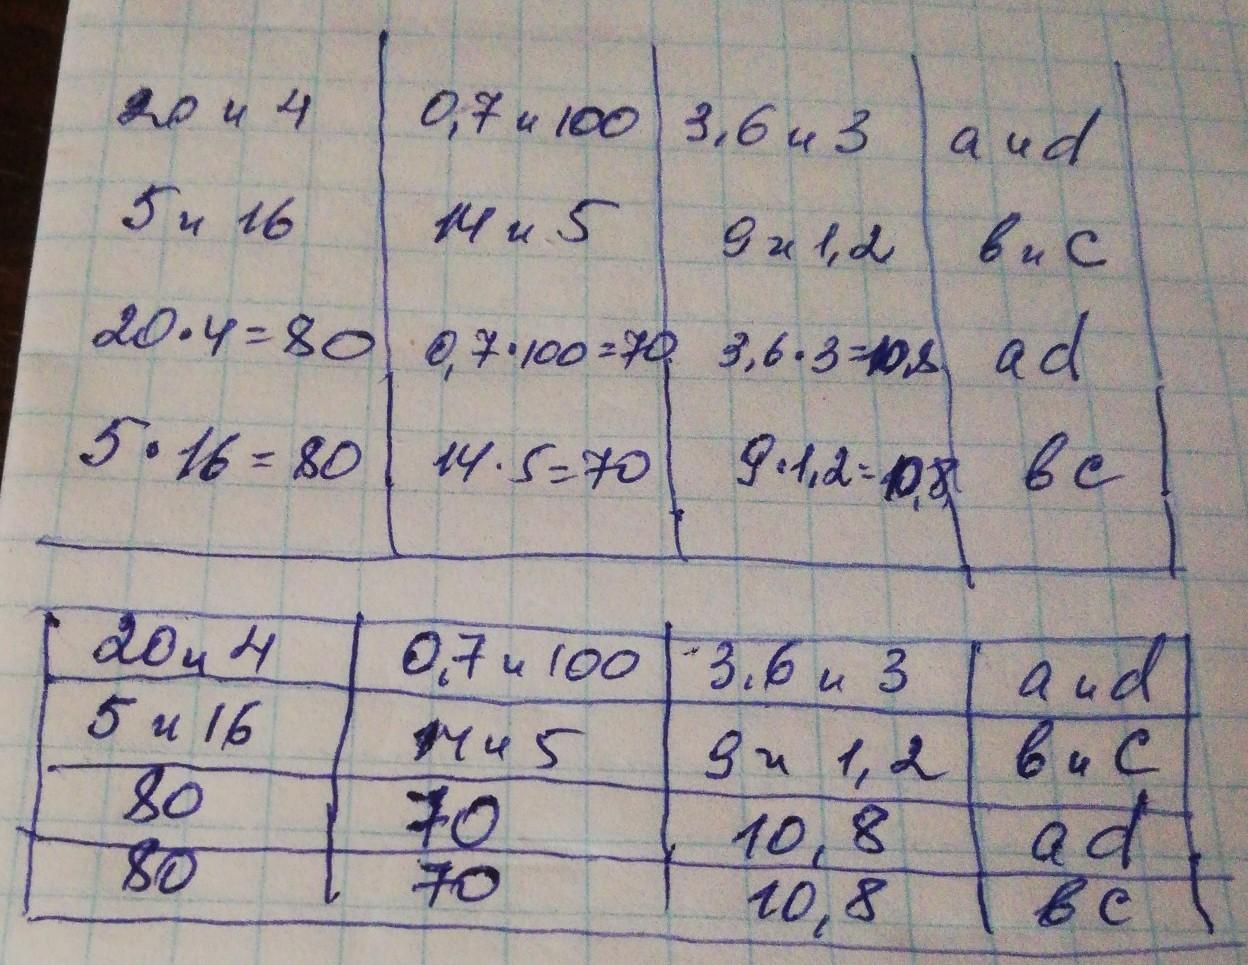 20 и 4 0,7 и 100 3,6 и 3 a и d
5 и 16 14 и 5 9 и 1,2 в и с
20·4=80 0,7·100=70 3,6·3=10,8 ad
5·16=80 14·5=70 9·1,2=10,8 вс
20 и 4 0,7 и 100 3,6 и 3 a и d
5 и 16 14 и 5 9 и 1,2 в и с
80 70 10,8 ad
80 70 10,8 вс